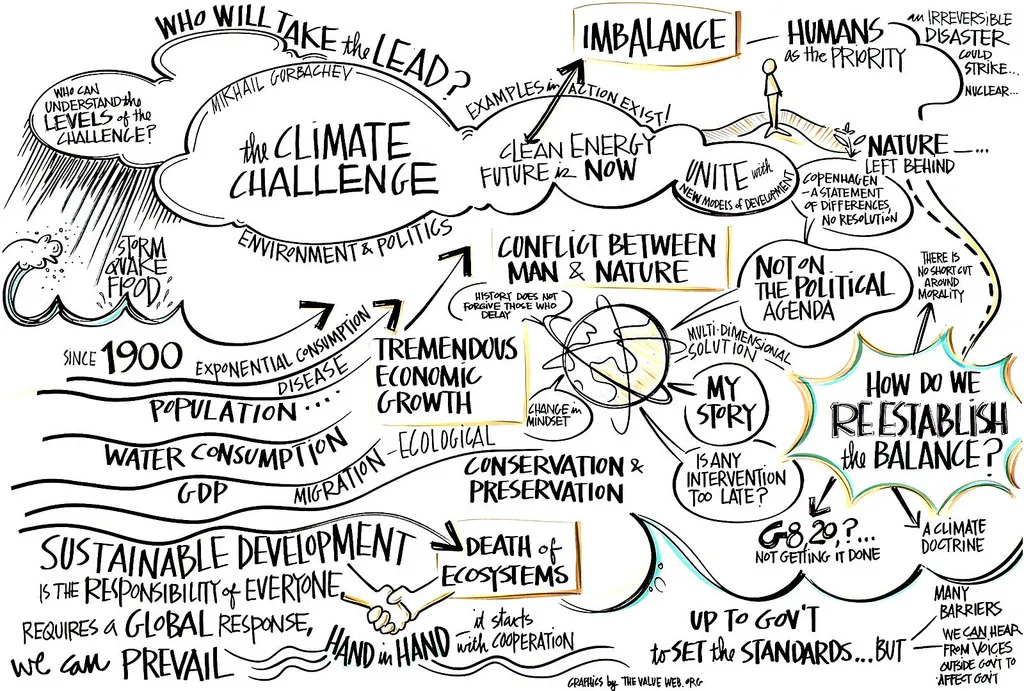 WHO WILL TAKE the LEAD?
MIKHAIL GORBACHEV
WHO CAN
UNDERSTAND the
LEVELS of the
CHALLENGE?
the CLIMATE
CHALLENGE
ENVIRONMENT & POLITICS
EXAMPLES in ACTION EXIST!
CLEAN ENERGY
FUTURE is NOW
UNITE with
NEW MODELS of DEVELOPMENT
IMBALANCE
HUMANS
as the PRIORITY
an IRREVERSIBLE
DISASTER
COULD
STRIKE...
NUCLEAR...
NATURE —...
LEFT BEHIND
COPENHAGEN
- A STATEMENT
OF DIFFERENCES,
NO RESOLUTION
STORM
QUAKE
FLOOD
CONFLICT BETWEEN
MAN & NATURE
HISTORY DOES NOT
FORGIVE THOSE WHO
DELAY
NOT ON
THE POLITICAL
AGENDA
THERE IS
NO SHORT CUT
AROUND
MORALITY
SINCE 1900
EXPONENTIAL CONSUMPTION
DISEASE
POPULATION ....
WATER CONSUMPTION
GDP
MIGRATION - ECOLOGICAL
TREMENDOUS
ECONOMIC
GROWTH
CHANGE in
MINDSET
MULTI-DIMENSIONAL
SOLUTION
MY
STORY
IS ANY
INTERVENTION
TOO LATE?
HOW DO WE
REESTABLISH
the BALANCE?
CONSERVATION &
PRESERVATION
G8, 20,?...
NOT GETTING IT DONE
A CLIMATE
DOCTRINE
SUSTAINABLE DEVELOPMENT
IS THE RESPONSIBILITY of EVERYONE,
REQUIRES a GLOBAL RESPONSE,
we can PREVAIL
DEATH of
ECOSYSTEMS
HAND in HAND
it starts
with COOPERATION
UP TO GOV'T
to SET the STANDARDS...BUT
MANY
BARRIERS
WE CAN HEAR
FROM VOICES
OUTSIDE GOV'T TO
AFFECT GOV'T
GRAPHICS by THE VALUE WEB.ORG